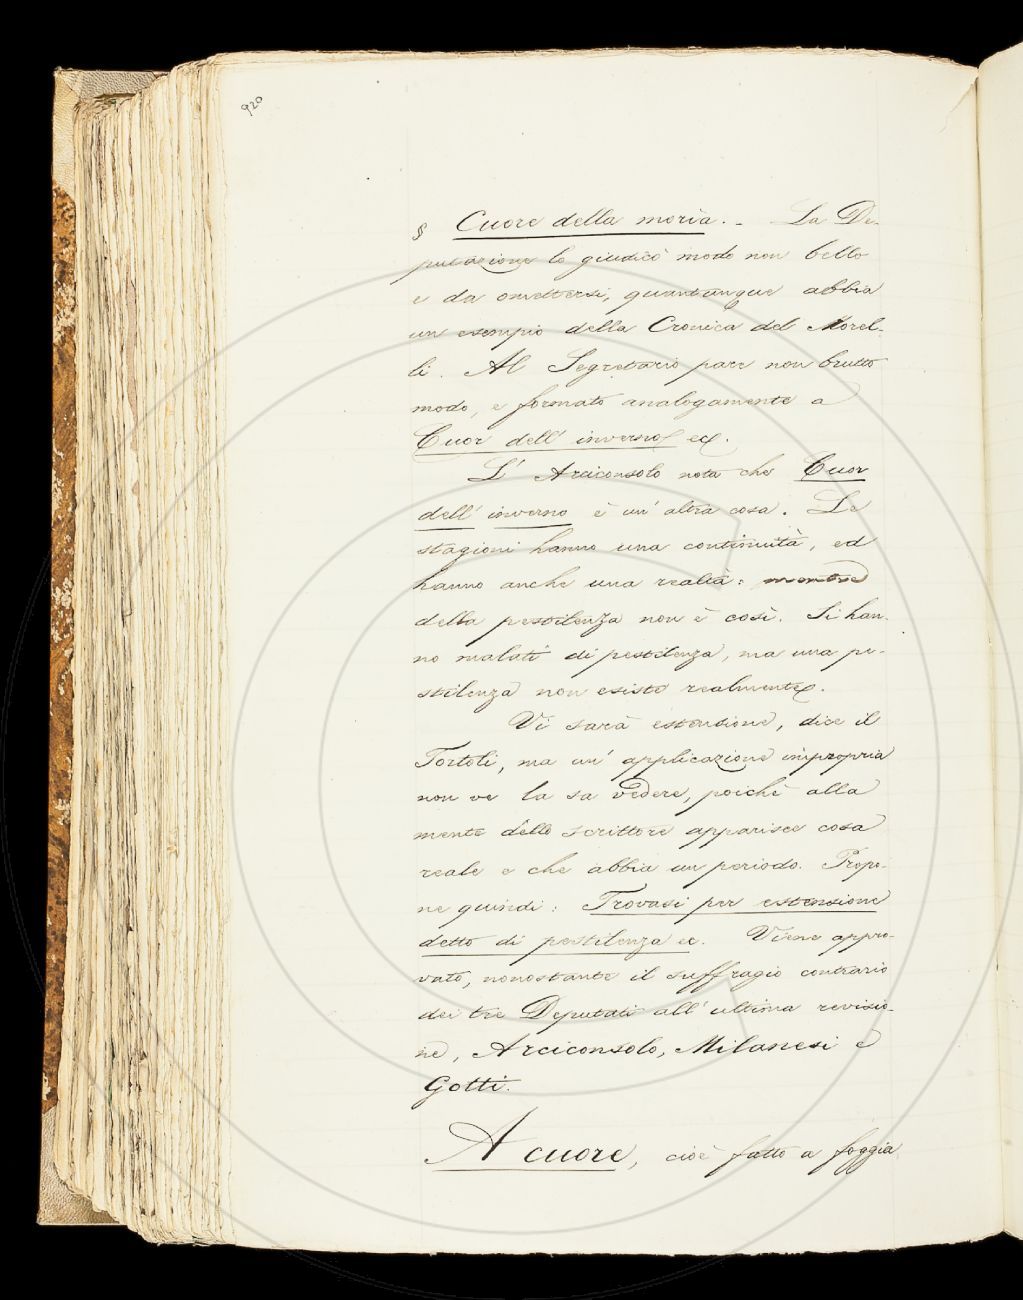 920
§ Cuore della morìa. - La De-
putazione lo giudicò modo non bello
e da omettersi, quantunque abbia
un esempio della Cronica del Morel-
li. Al Segretario pare non brutto
modo, e formato analogamente a
Cuor dell' inverno ec.
L' Arciconsolo nota che Cuor
dell' inverno è un' altra cosa. Le
stagioni hanno una continuità, ed
hanno anche una realtà: mentre
della pestilenza non è così. Si han-
no malati di pestilenza, ma una pe-
stilenza non esiste realmente.
Vi sarà estensione, dice il
Tortoli, ma un' applicazione impropria
non ve la sa vedere, poichè alla
mente dello scrittore apparisce cosa
reale e che abbia un periodo. Propo-
ne quindi: Trovasi per estensione
detto di pestilenza ec. Viene appro-
vato, nonostante il suffragio contrario
dei tre Deputati all' ultima revisio-
ne, Arciconsolo, Milanesi e
Gotti.
A cuore, cioè fatto a foggia